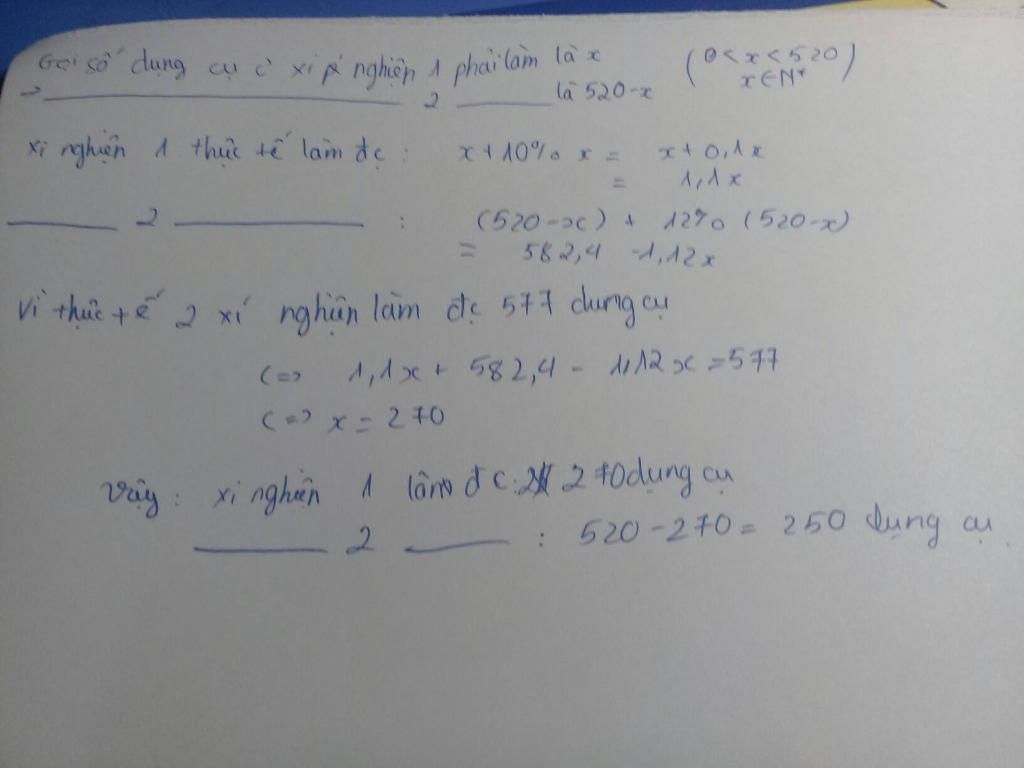 Gọi số dụng cụ c xi p nghiện 1 phải làm là x (0 < x < 520
x ∈ N*)
→ ——— 2 ——— là 520-x
xi nghiện 1 thực tế làm đc : x + 10% x = x + 0,1x
= 1,1x
——— 2 ——— : (520-x) + 12% (520-x)
= 582,4 -1,12x
Vì thực tế 2 xí nghiện làm đc 577 dung cụ
<=> 1,1x + 582,4 - 1,12x = 577
<=> x = 270
Vậy : xi nghiện 1 làm đc : 270 dụng cụ
——— 2 ——— : 520 - 270 = 250 dụng cụ